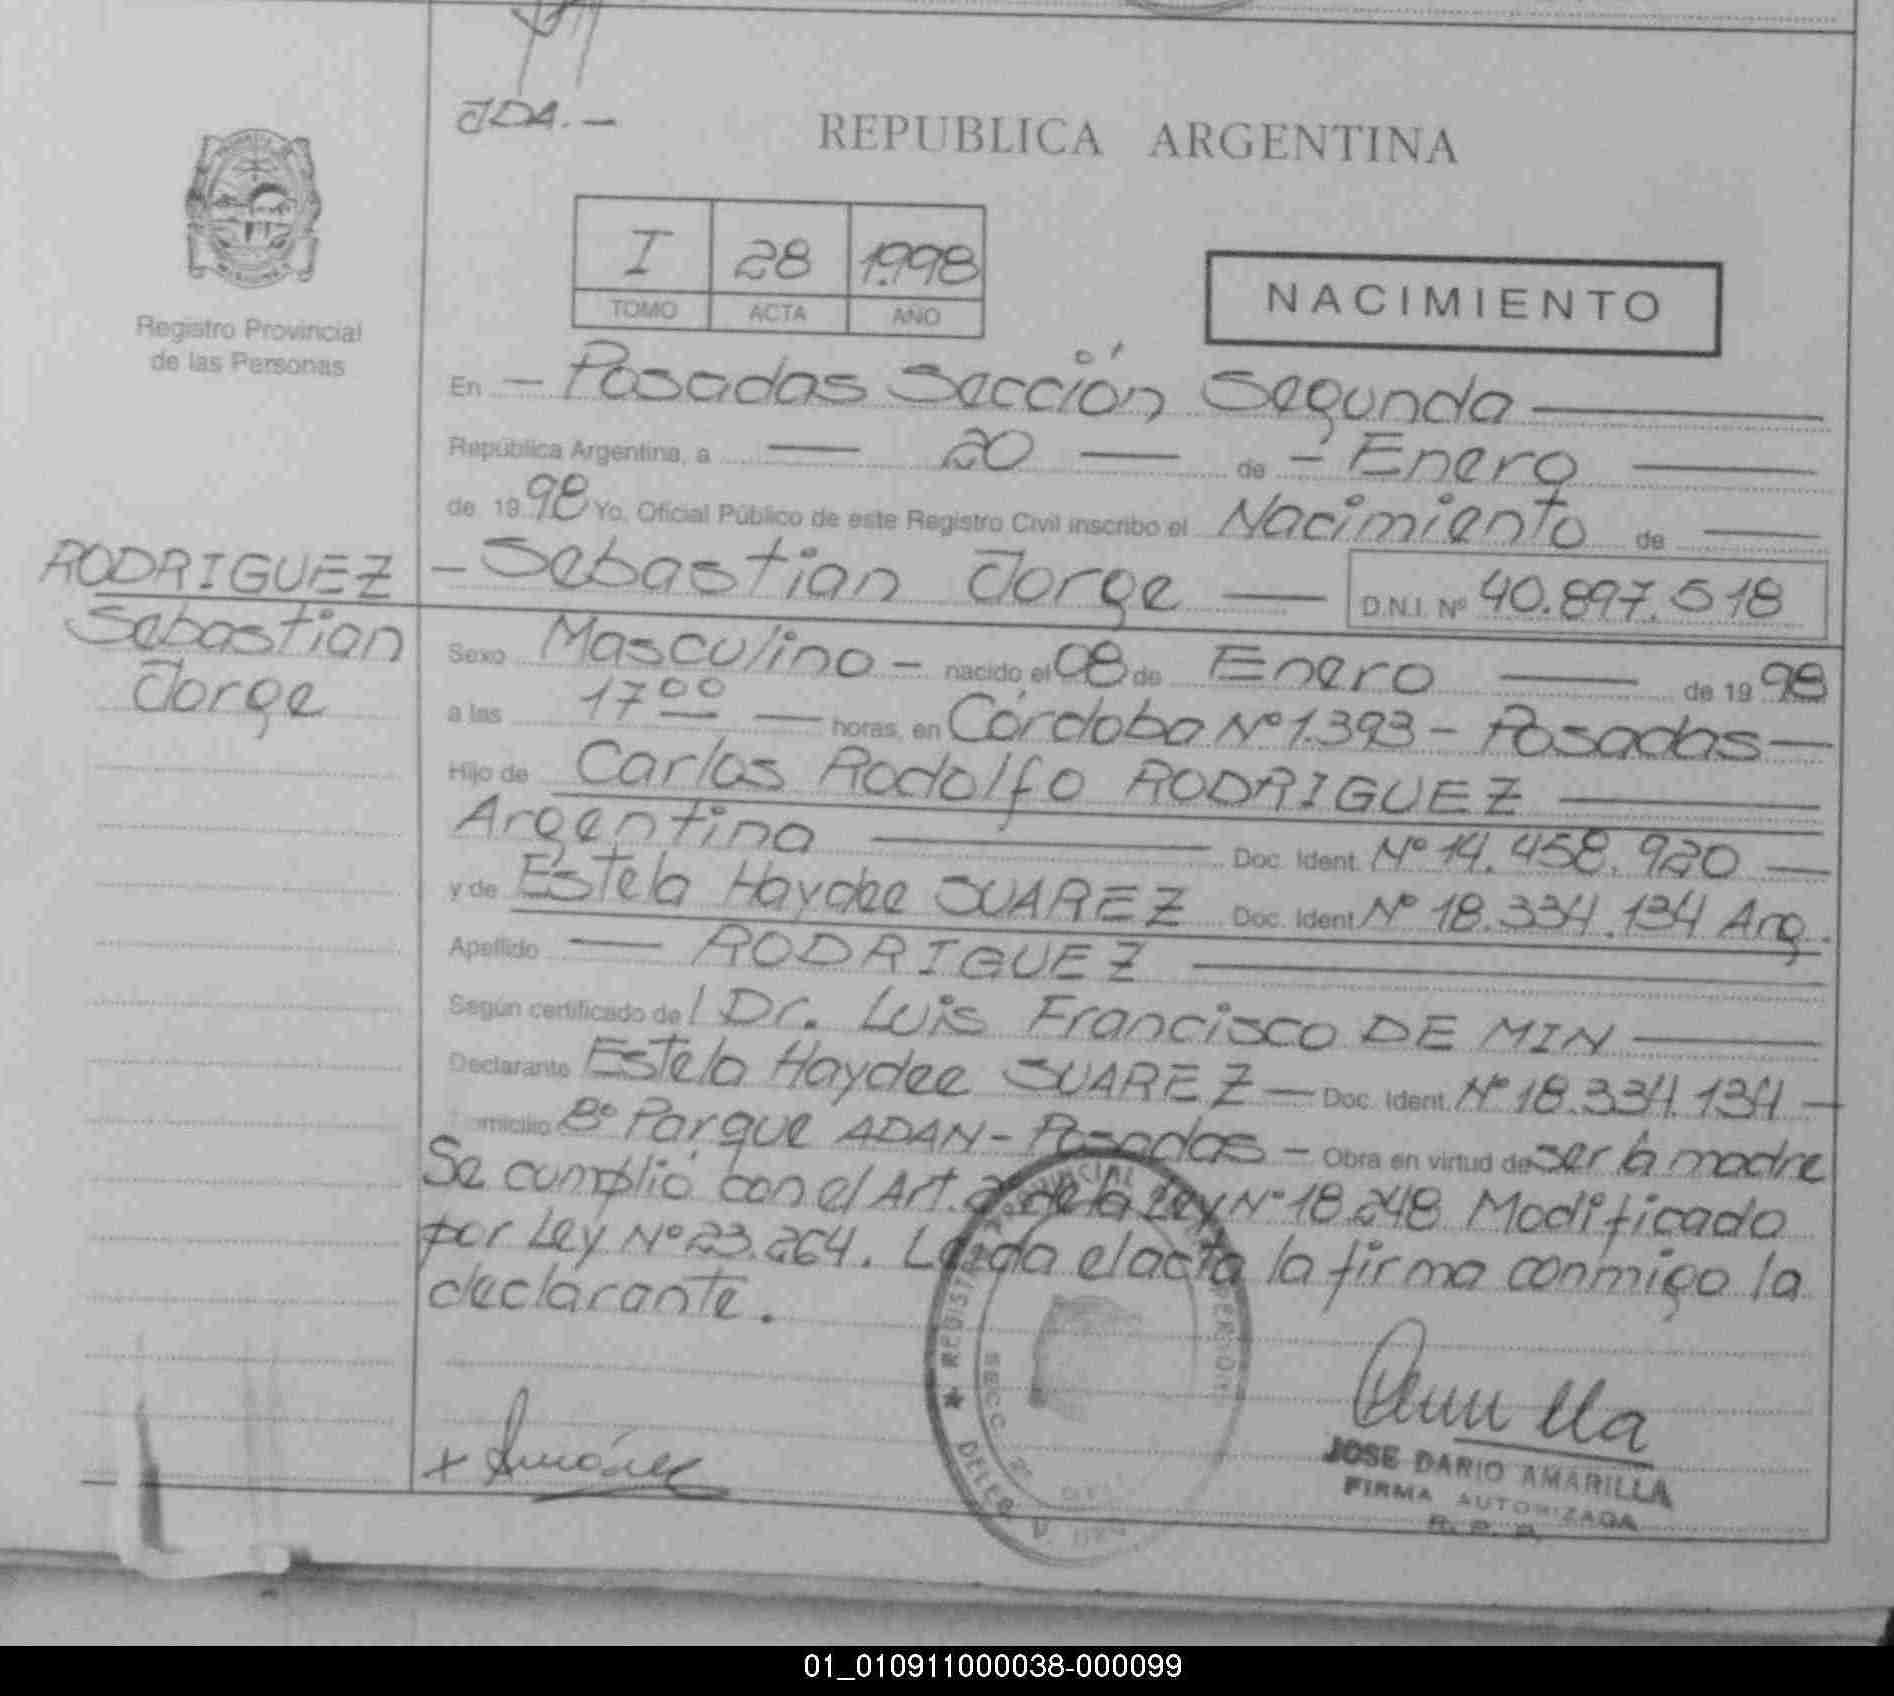 JDA.-
REPUBLICA ARGENTINA
I 28 1998
TOMO ACTA AÑO
NACIMIENTO
Registro Provincial
de las Personas
En - Posadas Sección Segunda
República Argentina, a 20 de - Enero
de 1998 Yo, Oficial Público de este Registro Civil inscribo el Nacimiento de
RODRIGUEZ
Sebastian
Jorge
- Sebastian Jorge D.N.I. Nº 40.897.518
Sexo Masculino - nacido el 08 de Enero de 1998
a las 17 00 horas, en Córdoba Nº 1.393 - Posadas
Hijo de Carlos Rodolfo RODRIGUEZ
Argentino Doc. Ident. Nº 14.458.920
y de Estela Haydee SUAREZ Doc. Ident. Nº 18.334.134 Arg.
Apellido RODRIGUEZ
Según certificado del Dr. Luis Francisco DE MIN
Declarante Estela Haydee SUAREZ - Doc. Ident. Nº 18.334.134
Domicilio Bº Parque ADAN - Posadas - Obra en virtud de ser la madre
Se cumplió con el Art. 2 de la Ley Nº 18.248 Modificado
por Ley Nº 23.264. Leida el acta la firma conmigo la
declarante.
REGISTRO PROVINCIAL
SECC. 2º
JOSE DARIO AMARILLA
FIRMA AUTORIZADA
R. P. P.
01_010911000038-000099